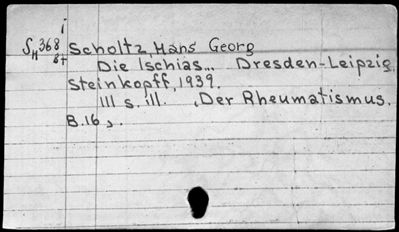 i
SM 368 Scholtz, Hans Georg
8+ Die Ischias... Dresden-Leipzig,
Steinkopff, 1939.
111 s. ill. , Der Rheumatismus.
B.16 , .